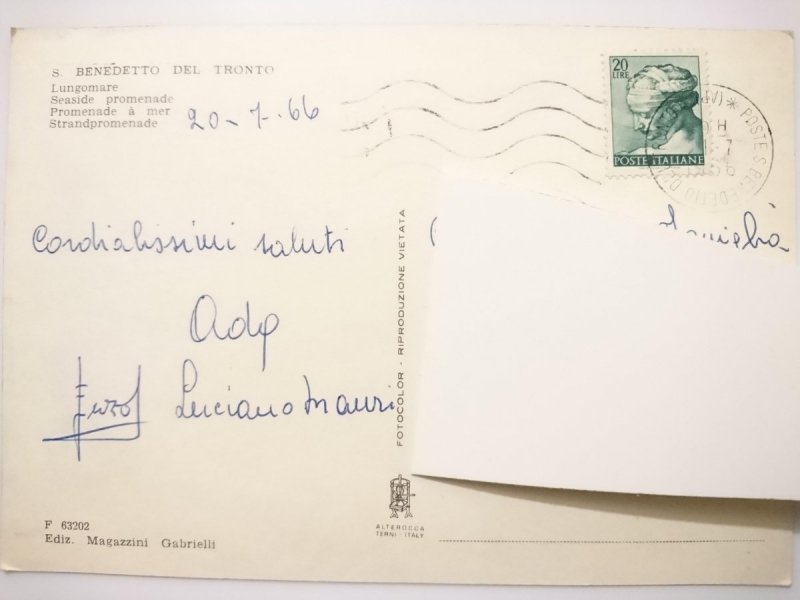 S. BENEDETTO DEL TRONTO
Lungomare
Seaside promenade
Promenade à mer
Strandpromenade
20-7-66
20
LIRE
POSTE ITALIANE
Cordialissimi saluti
Ada
Enzo Luciano Mauri
FOTOCOLOR - RIPRODUZIONE VIETATA
ALTEROCCA
TERNI - ITALY
F 63202
Ediz. Magazzini Gabrielli